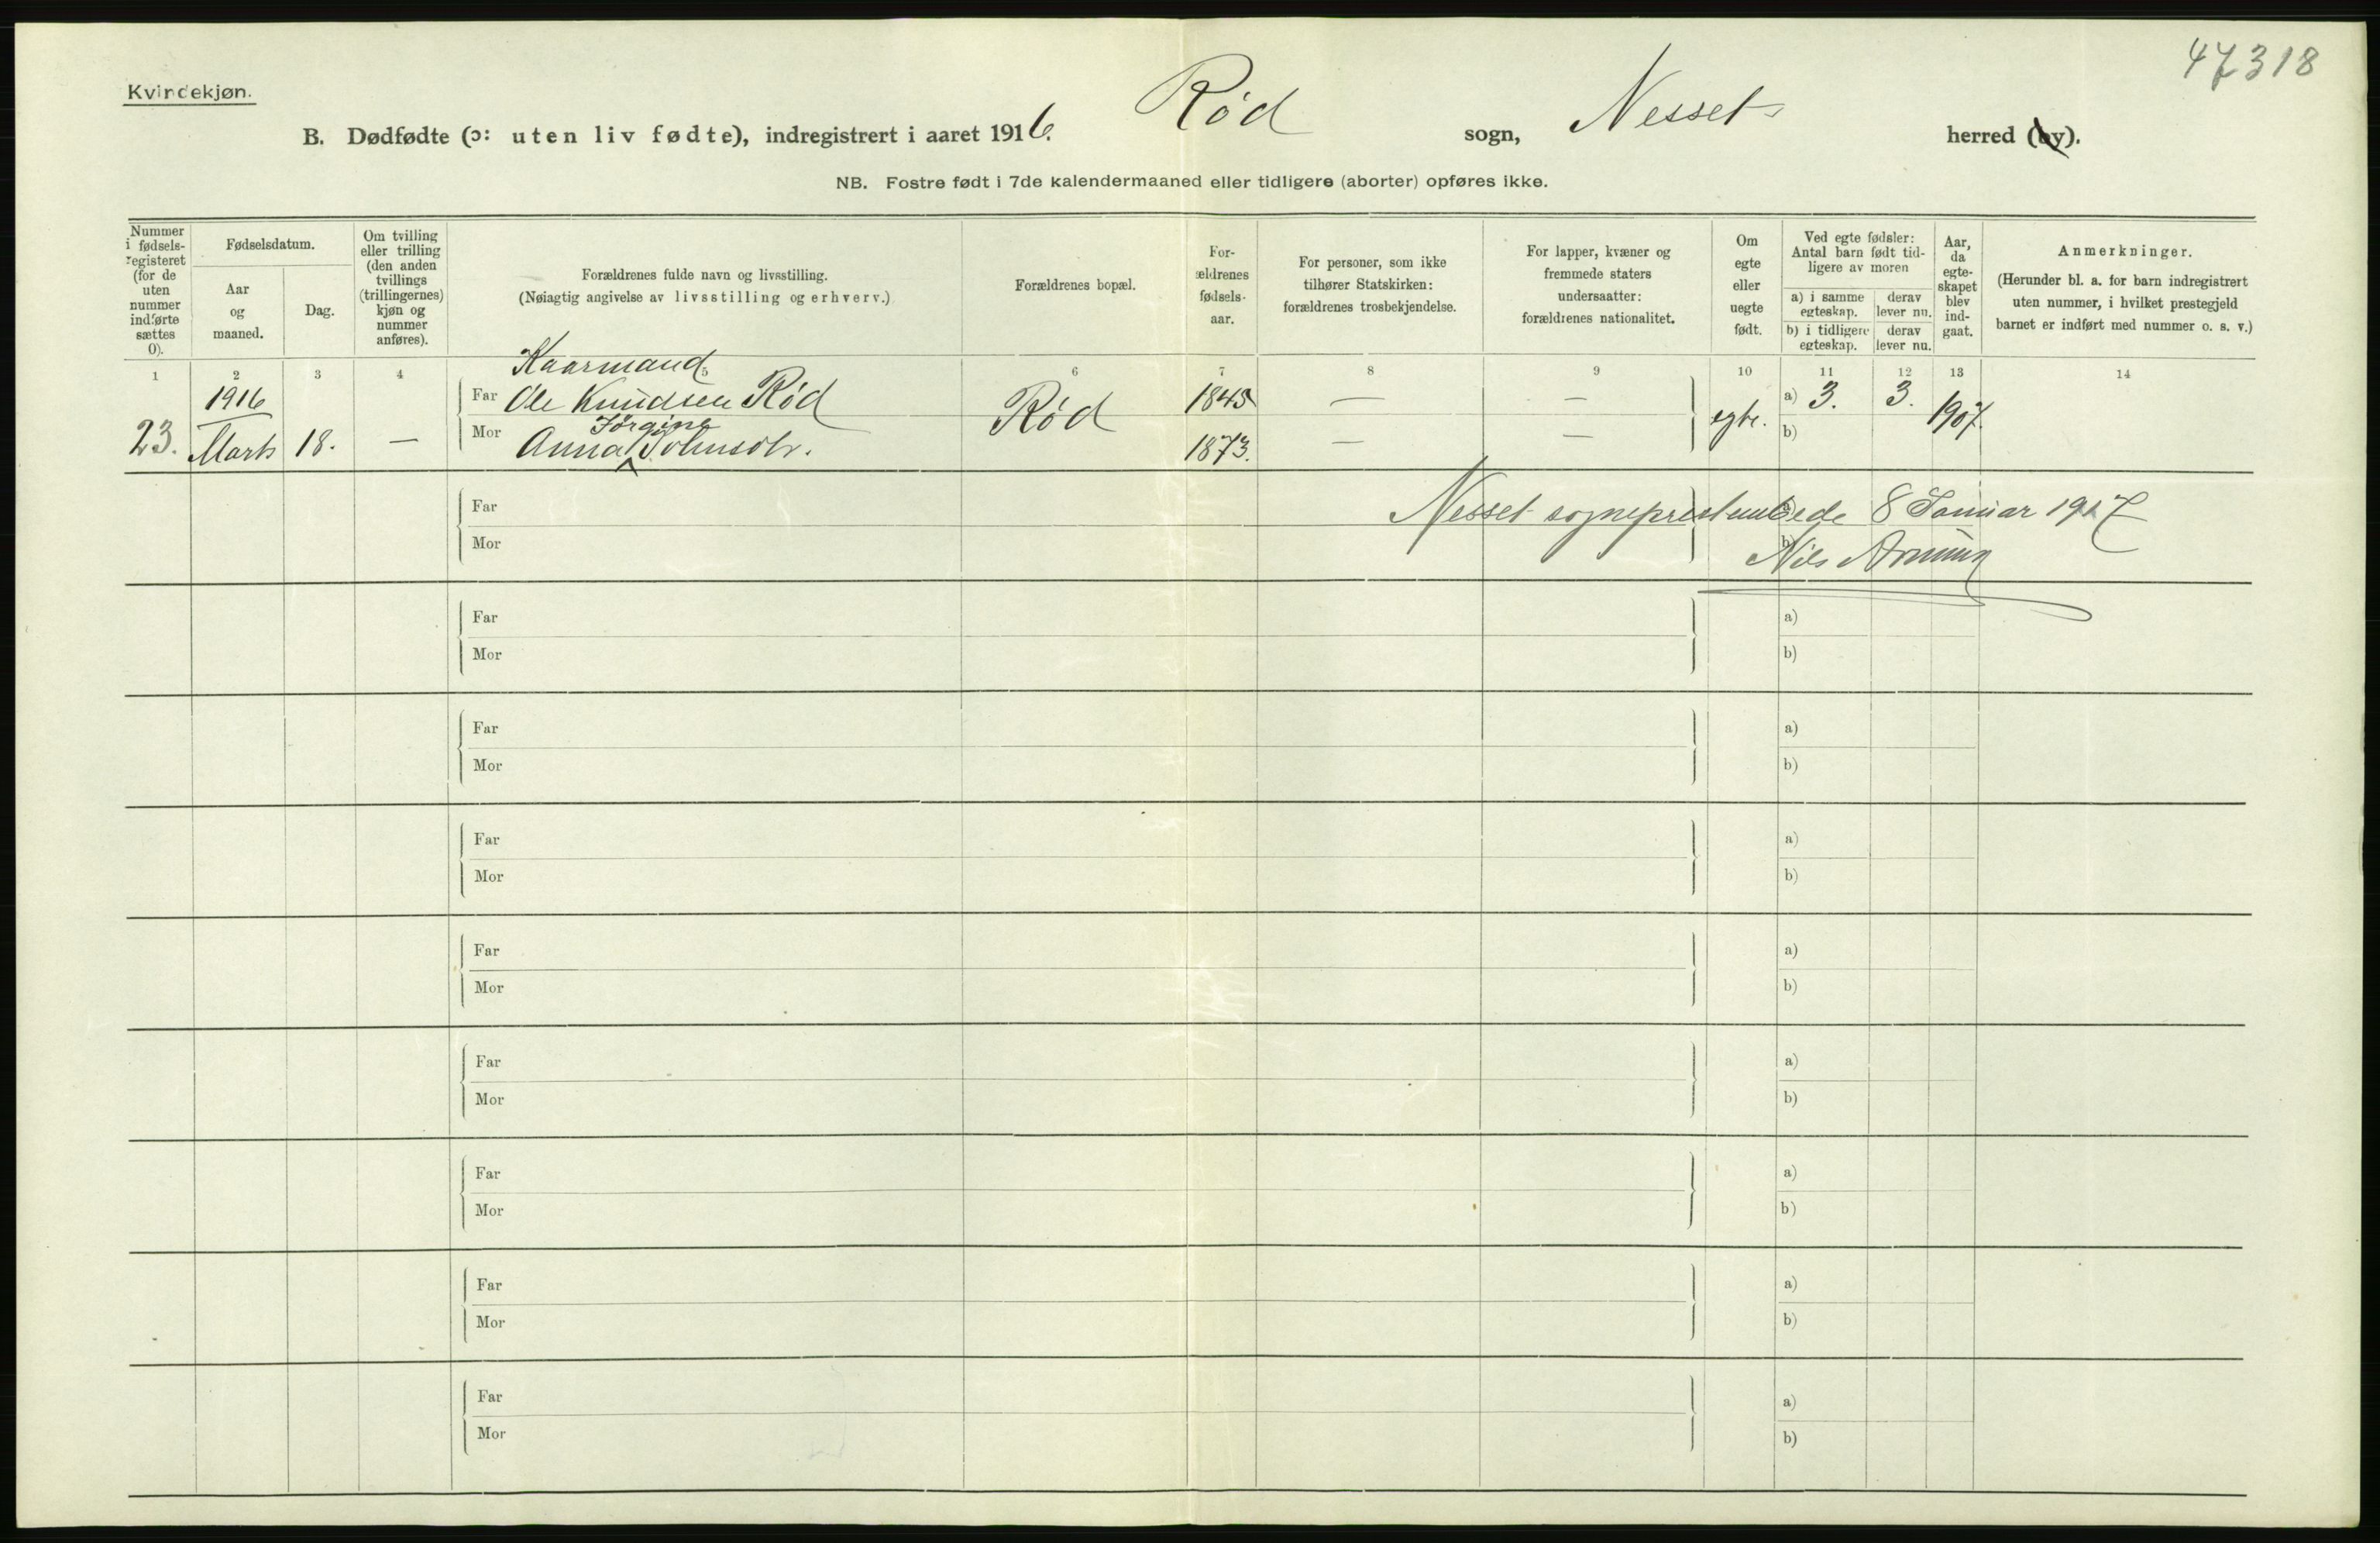 47318
Kvindekjøn.
B. Dødfødte (ɔ: uten liv fødte), indregistrert i aaret 1916. Rød sogn, Nesset herred (by).
NB. Fostre født i 7de kalendermaaned eller tidligere (aborter) opføres ikke.
Nummer i fødsels-registeret (for de uten nummer indførte sættes 0).
Fødselsdatum.
Aar og maaned.
Dag.
Om tvilling eller trilling (den anden tvillings (trillingernes) kjøn og nummer anføres).
Forældrenes fulde navn og livsstilling.
(Nøiagtig angivelse av livsstilling og erhverv.)
Forældrenes bopæl.
For-ældrenes fødsels-aar.
For personer, som ikke tilhører Statskirken: forældrenes trosbekjendelse.
For lapper, kvæner og fremmede staters undersaatter: forældrenes nationalitet.
Om egte eller uegte født.
Ved egte fødsler: Antal barn født tid-ligere av moren
a) i samme egteskap.
derav lever nu.
b) i tidligere egteskap.
derav lever nu.
Aar, da egte-skapet blev ind-gaat.
Anmerkninger.
(Herunder bl. a. for barn indregistrert uten nummer, i hvilket prestegjeld barnet er indført med nummer o. s. v.)
1 2 3 4 5 6 7 8 9 10 11 12 13 14
Kaarmand
1916 Far Ole Knudsen Rød Rød 1845 — — egte. a) 3. 3. 1907.
Jørgine
23. Marts 18. — Mor Anna Johnsdtr. 1873. — — b)
Far
Nesset sogneprestembede 8 Januar 1917
Mor b)
Nils
Far a)
Mor b)
Far a)
Mor b)
Far a)
Mor b)
Far a)
Mor b)
Far a)
Mor b)
Far a)
Mor b)
Far a)
Mor b)
Far a)
Mor b)